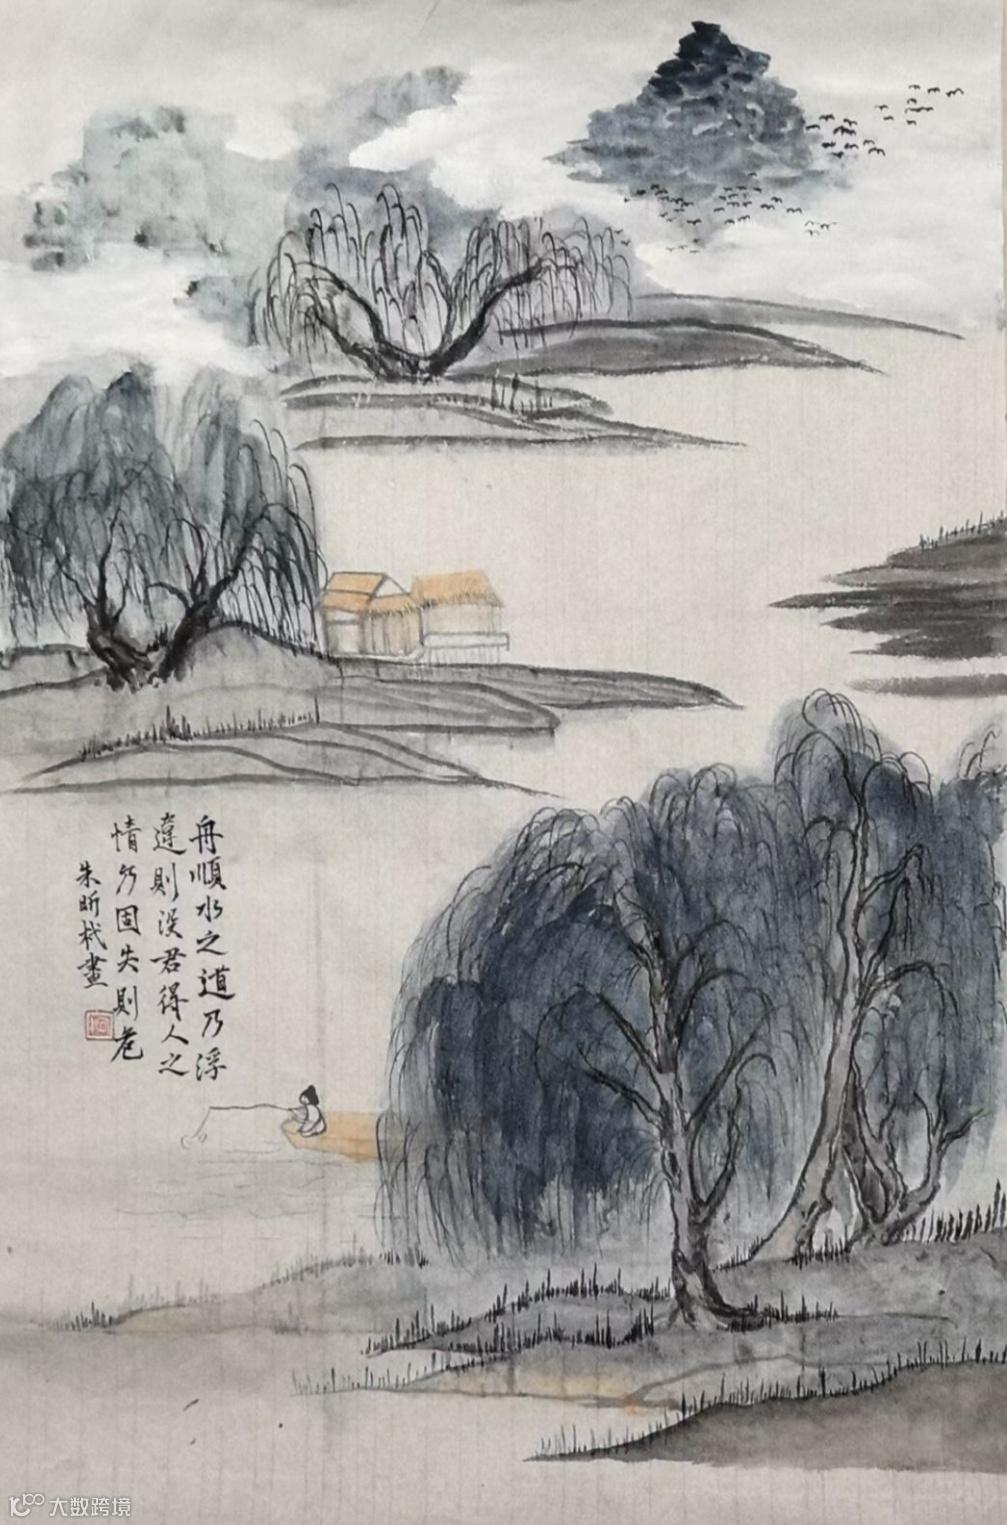 舟順水之道乃浮
違則没君得人之
情乃固失則危
朱昕栻畫
大数跨境